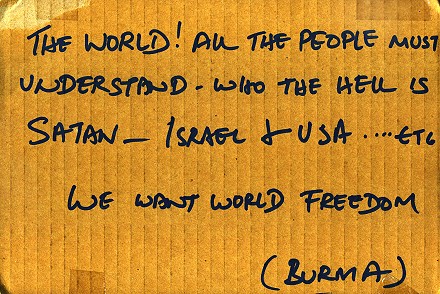 THE WORLD! All THE PEOPLE MUST
UNDERSTAND - WHO THE HELL IS
SATAN - ISRAEL & USA .... ETC
WE WANT WORLD FREEDOM
(BURMA)